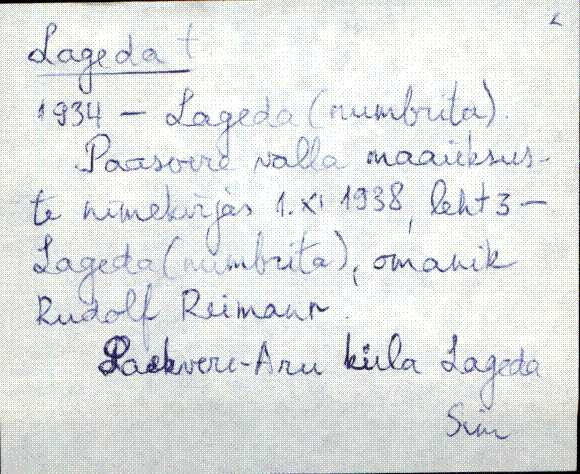 Lageda †
1934 — Lageda (numbrita).
Paasvere valla maaüksus-
te nimekirjas 1. XI 1938, leht 3 —
Lageda (numbrita), omanik
Rudolf Reimann.
Paekvere-Aru küla Lageda
Sim